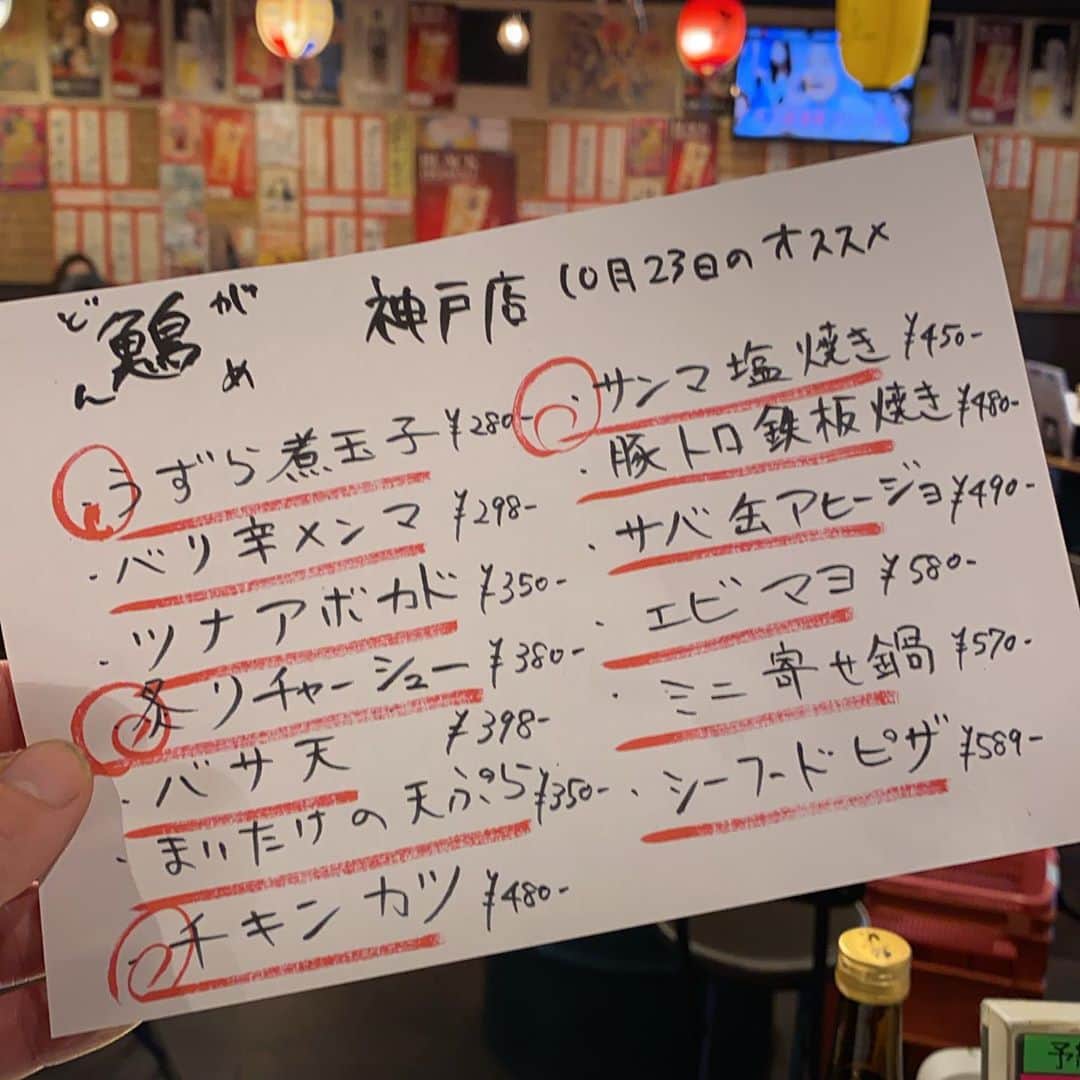 どんがめ
神戸店 10月23日のオススメ
・うずら煮玉子 ¥280-
・バリ辛メンマ ¥298-
・ツナアボカド ¥350-
・炙りチャーシュー ¥380-
・バサ天 ¥398-
・まいたけの天ぷら ¥350-
・チキンカツ ¥480-
・サンマ塩焼き ¥450-
・豚トロ鉄板焼き ¥480-
・サバ缶アヒージョ ¥490-
・エビマヨ ¥580-
・ミニ寄せ鍋 ¥570-
・シーフードピザ ¥589-